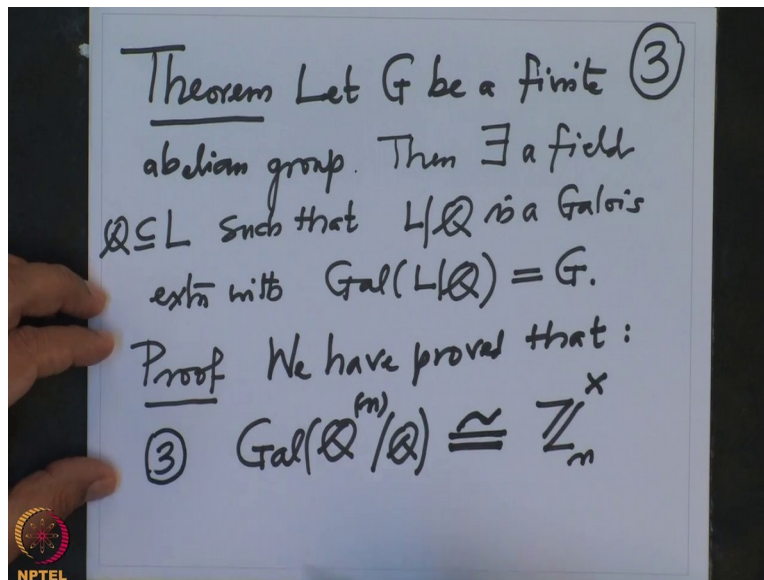 Theorem Let G be a finite ③
abelian group. Then ∃ a field
Q ⊆ L such that L|Q is a Galois
extn with Gal(L|Q) = G.
Proof We have proved that :
③ Gal(Q^(n)/Q) ≅ Z_n^×
NPTEL